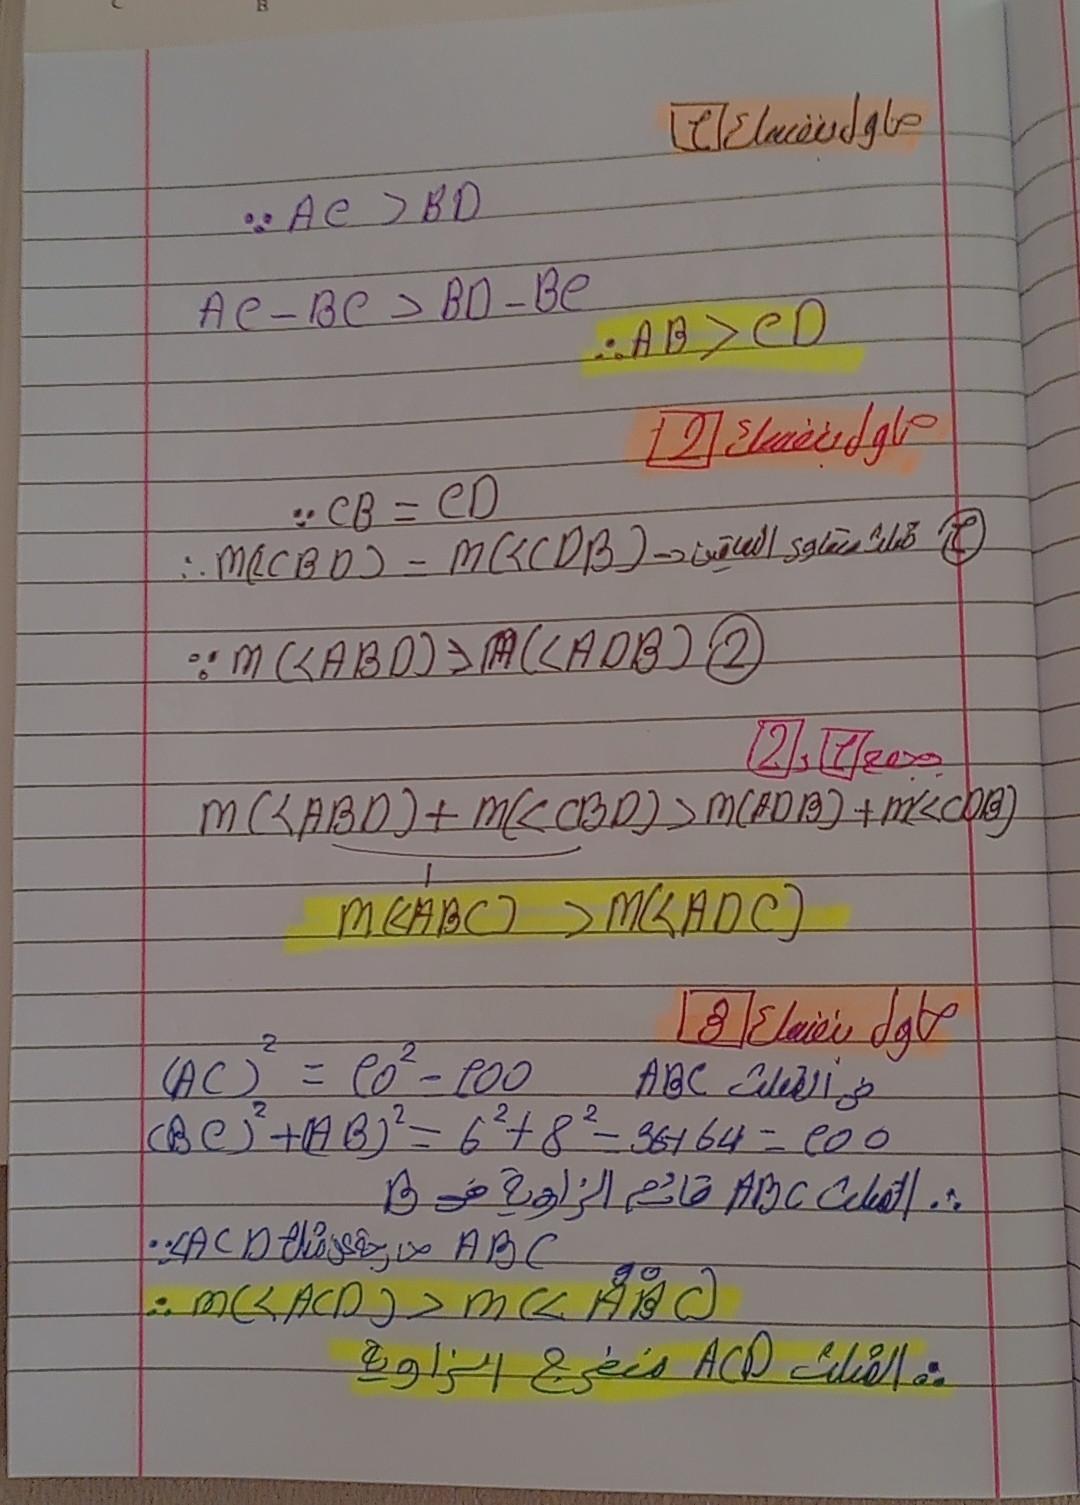 C B
حاول بنفسك 1
∵ AC > BD
AC - BC > BD - BC
∴ AB > CD
حاول بنفسك 2
∵ CB = CD
∴ m(<CBD) = m(<CDB) → مثلث متساوي الساقين 1
∵ m(<ABD) > m(<ADB) 2
من 1 , 2
m(<ABD) + m(<CBD) > m(ADB) + m(<CDB)
m(<ABC) > m(<ADC)
حاول بنفسك 3
(AC)² = 10² = 100 في المثلث ABC
(BC)² + (AB)² = 6² + 8² = 36 + 64 = 100
∴ المثلث ABC قائم الزاوية في B
∵ <ACD خارجة عن مثلث ABC
∴ m(<ACD) > m(<ABC) 90
∴ المثلث ACD منفرج الزاوية